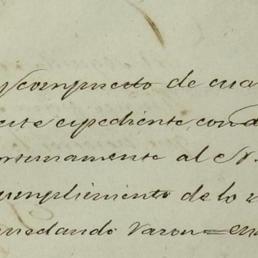 y compuesto de cua
este espediente con d
ortunamente al Sr.
cumplimiento de lo
quedando Varon = en